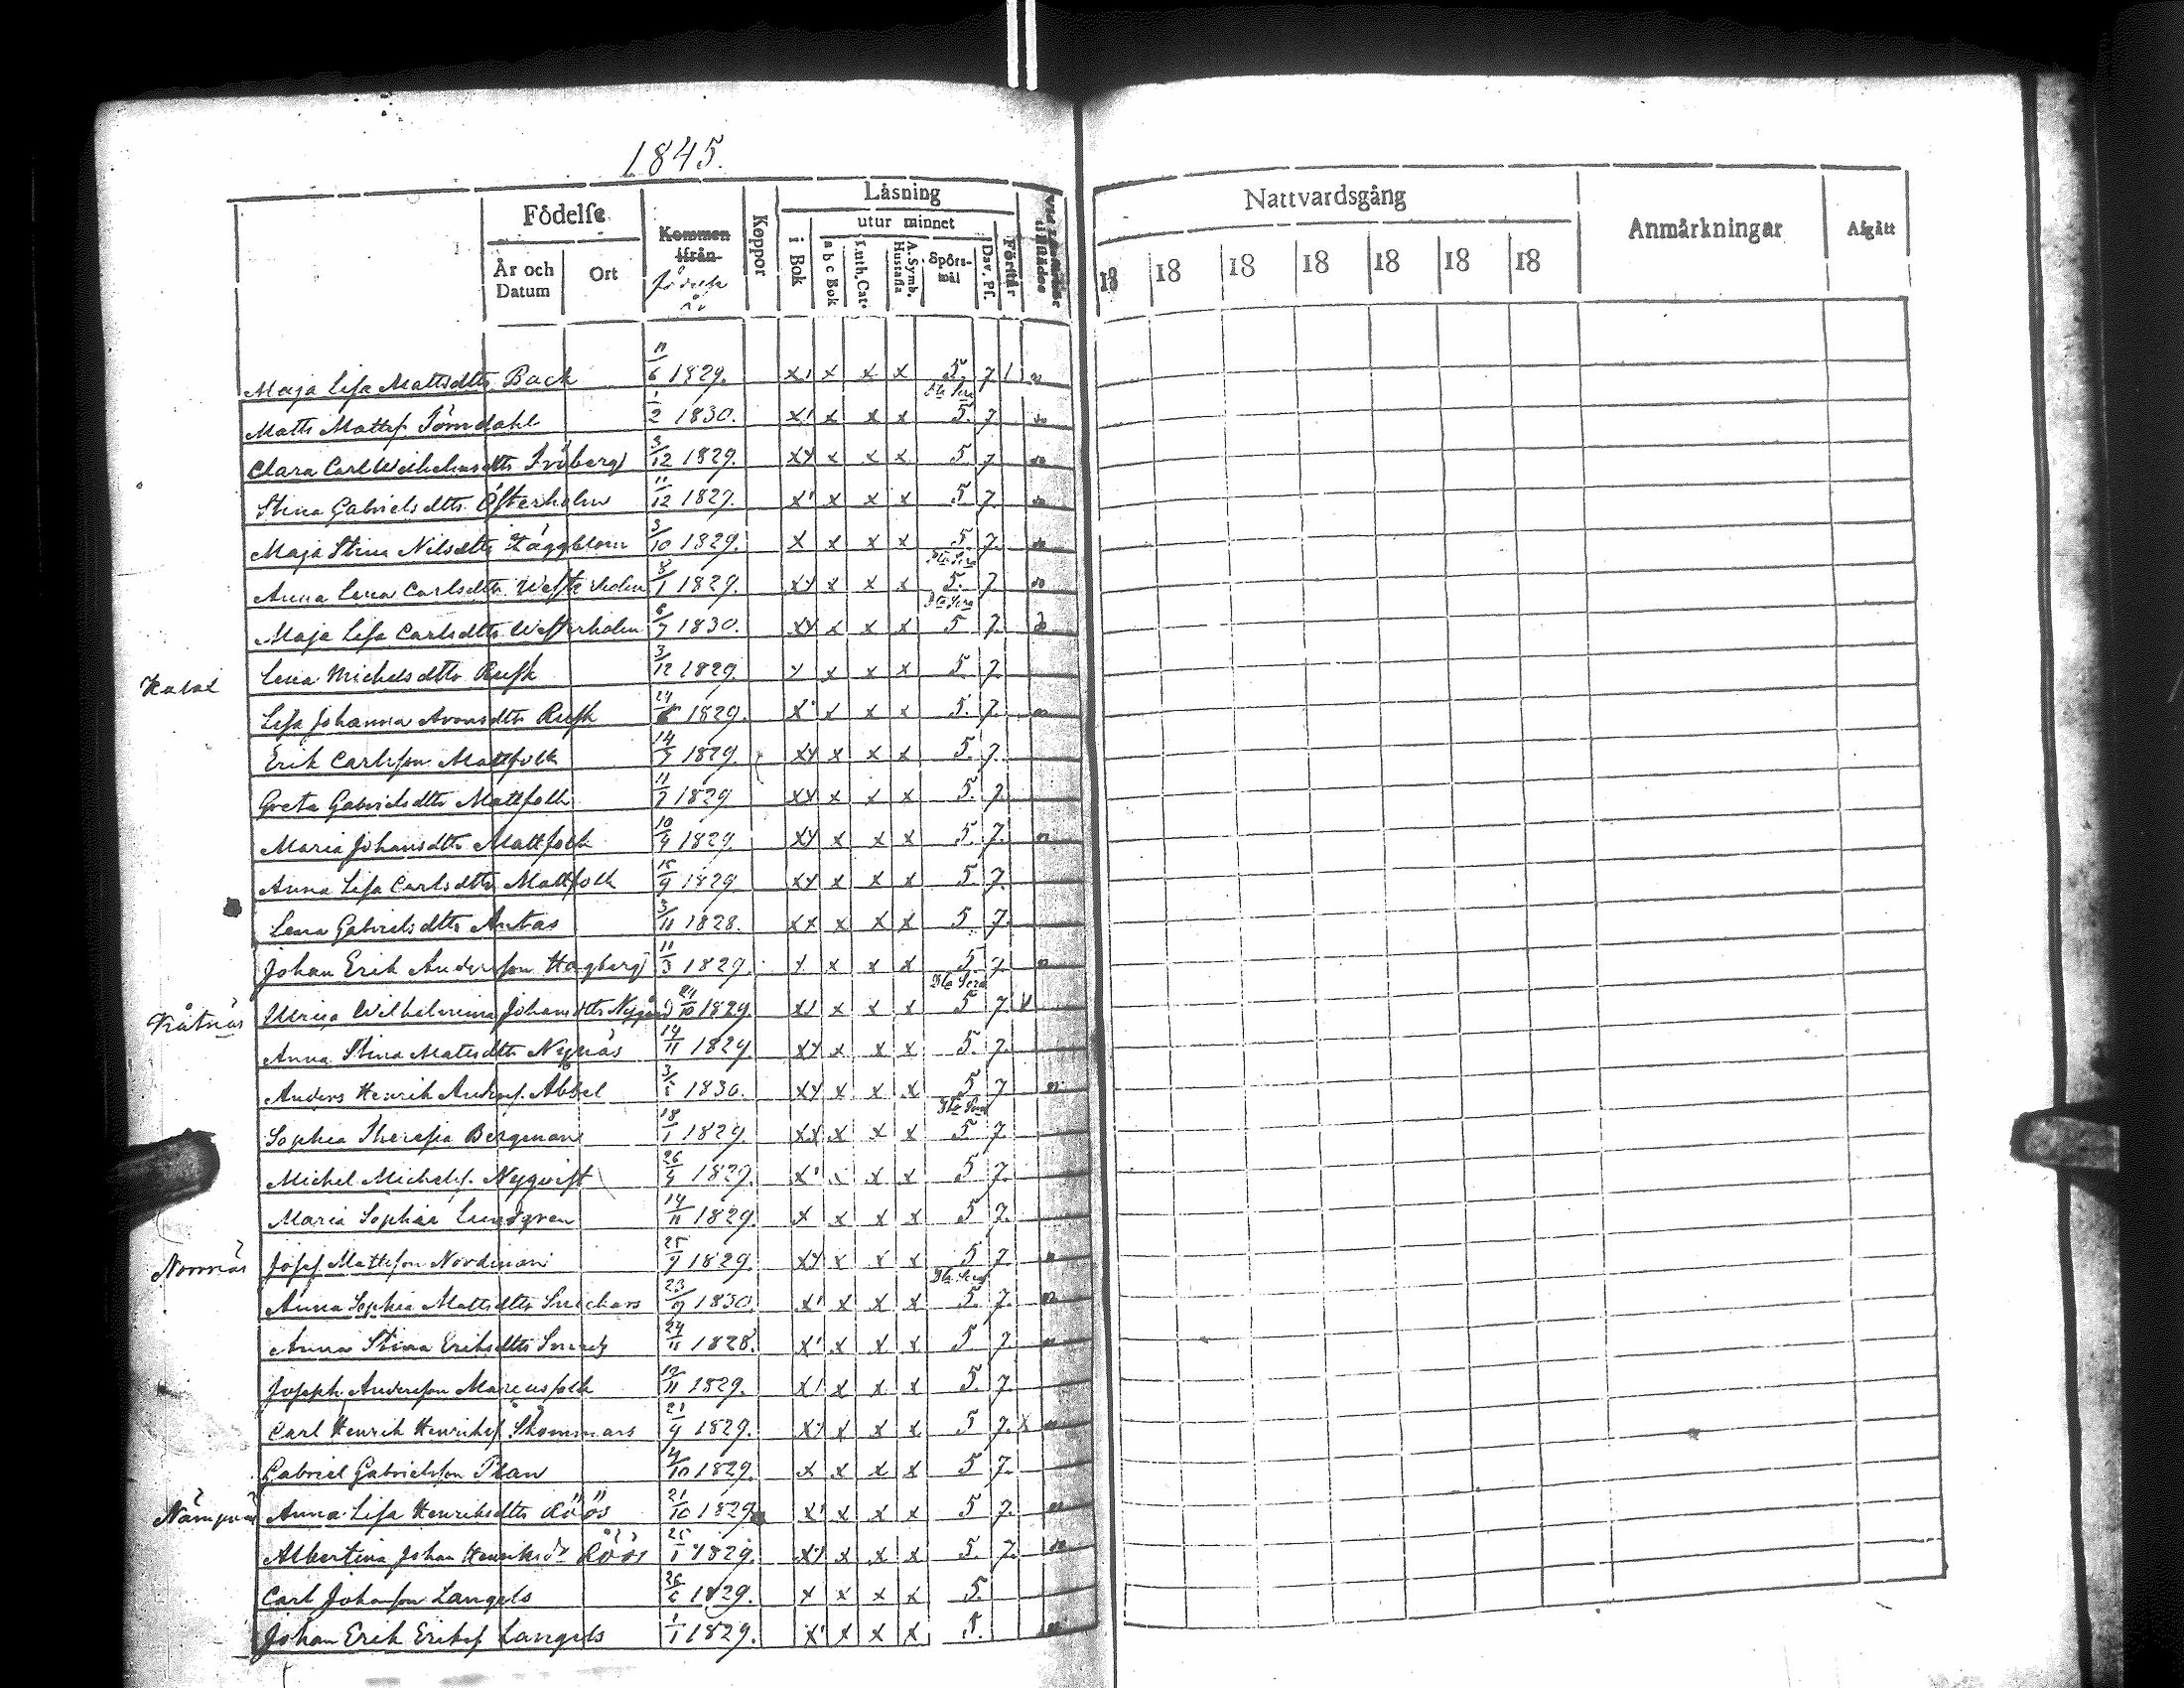 1845.
Födelse
Kommen ifrån
födelse år
Koppor
Läsning
utur minnet
Nattvardsgång
Anmärkningar
Afgått
År och Datum
Ort
i Bok
a b c Bok
Luth. Cat.
A. Symb. Hustafla
Spörsmål
Dav. Ps.
Förstår
18 18 18 18 18 18 18
Maja Lisa Mattsdtr Back 11/6 1829. x x x x 5. 7
Matts Mattss. Törndahl 1/2 1830. x x x x 5. 7.
Clara Carl Wilhelmsdtr Fröberg 3/12 1829. xx x x x 5. 7
Stina Gabrielsdtr Österholm 11/12 1829. x x x x 5 7.
Maja Stina Nilsdtr Häggblom 3/10 1829. x x x x 5 7.
Anna Lena Carlsdtr Westerholm 8/1 1829. xx x x x 5. 7.
Maja Lisa Carlsdtr Westerholm 6/7 1830. xx x x x 5 7.
Lena Michelsdtr Rusk 3/12 1829. x x x x 5. 7.
Lisa Johanna Aronsdtr Rusk 24/6 1829. x x x x 5. 7.
Erik Carlsson Mattfolk 14/5 1829. xx x x x 5. 7.
Greta Gabrielsdtr Mattfolk 11/7 1829 xx x x x 5. 7.
Maria Johansdtr Mattfolk 10/4 1829. xx x x x 5. 7.
Anna Lisa Carlsdtr Mattfolk 15/9 1829 xx x x x 5. 7.
Lena Gabrielsdtr Antas 3/11 1828. xx x x x 5. 7.
Johan Erik Andersson Hagberg 11/3 1829. x x x x 5 7.
Ulrica Wilhelmina Johansdtr Nygård 24/10 1829. x x x x 5 7. x
Anna Stina Matsdtr Nynäs 14/11 1829. xx x x x 5. 7.
Anders Henrik Anderss. Abbel 3/5 1830. xx x x x 5 7
Sophia Theresia Bergman 18/1 1829. xx x x x 5. 7.
Michel Michelss. Nyqvist 26/4 1829. x x x x 5 7.
Maria Sophia Lundqren 14/11 1829. x x x x 5 7.
Norrnäs Josef Mattsson Nordman 25/9 1829. xx x x x 5 7.
Anna Sophia Mattsdtr Snickars 23/9 1830. x x x x 5. 7.
Anna Stina Eriksdtr Smeds 24/11 1828. x x x x 5 7.
Joseph Andersson Marcusfolk 19/11 1829. x x x x 5. 7.
Carl Henrik Henrikss. Skommars 21/9 1829. x x x x 5 7. x
Gabriel Gabrielsson Plan 4/10 1829. x x x x 5 7.
Nämpnäs Anna Lisa Henriksdtr Röös 21/10 1829. x x x x 5 7.
Albertina Johan Henriksdr Röös 25/1 1829. xx x x x 5. 7.
Carl Johansson Langels 26/6 1829. x x x x 5.
Johan Erik Erikss Langels 1/1 1829. x x x x 5.